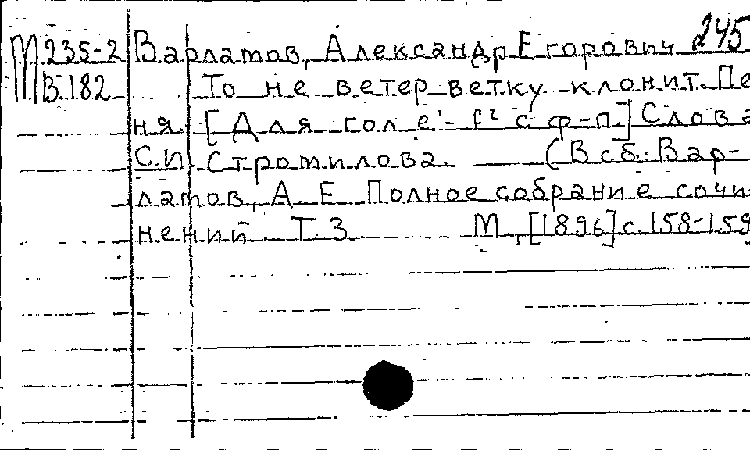 245
М 235-2 Варламов, Александр Егорович
В.182 То не ветер ветку клонит. Пе-
ня. [Для гол. е¹-f² с ф-п.] Слова
С.И Стромилова. (В сб.: Вар-
ламов, А. Е. Полное собрание сочи-
нений. Т. 3. М., [1896] с. 158-159